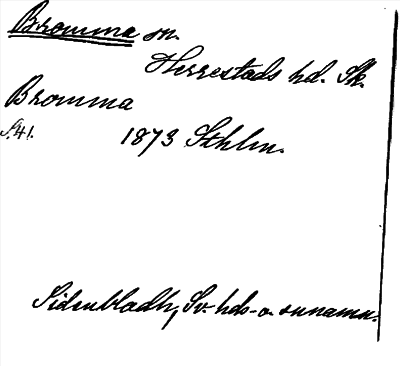 Bromma sn.
Herrestads hd. Sk.
Bromma
S. 41.
1873 Sthlm.
Sidenbladh, Sv. hds- o. snnamn.